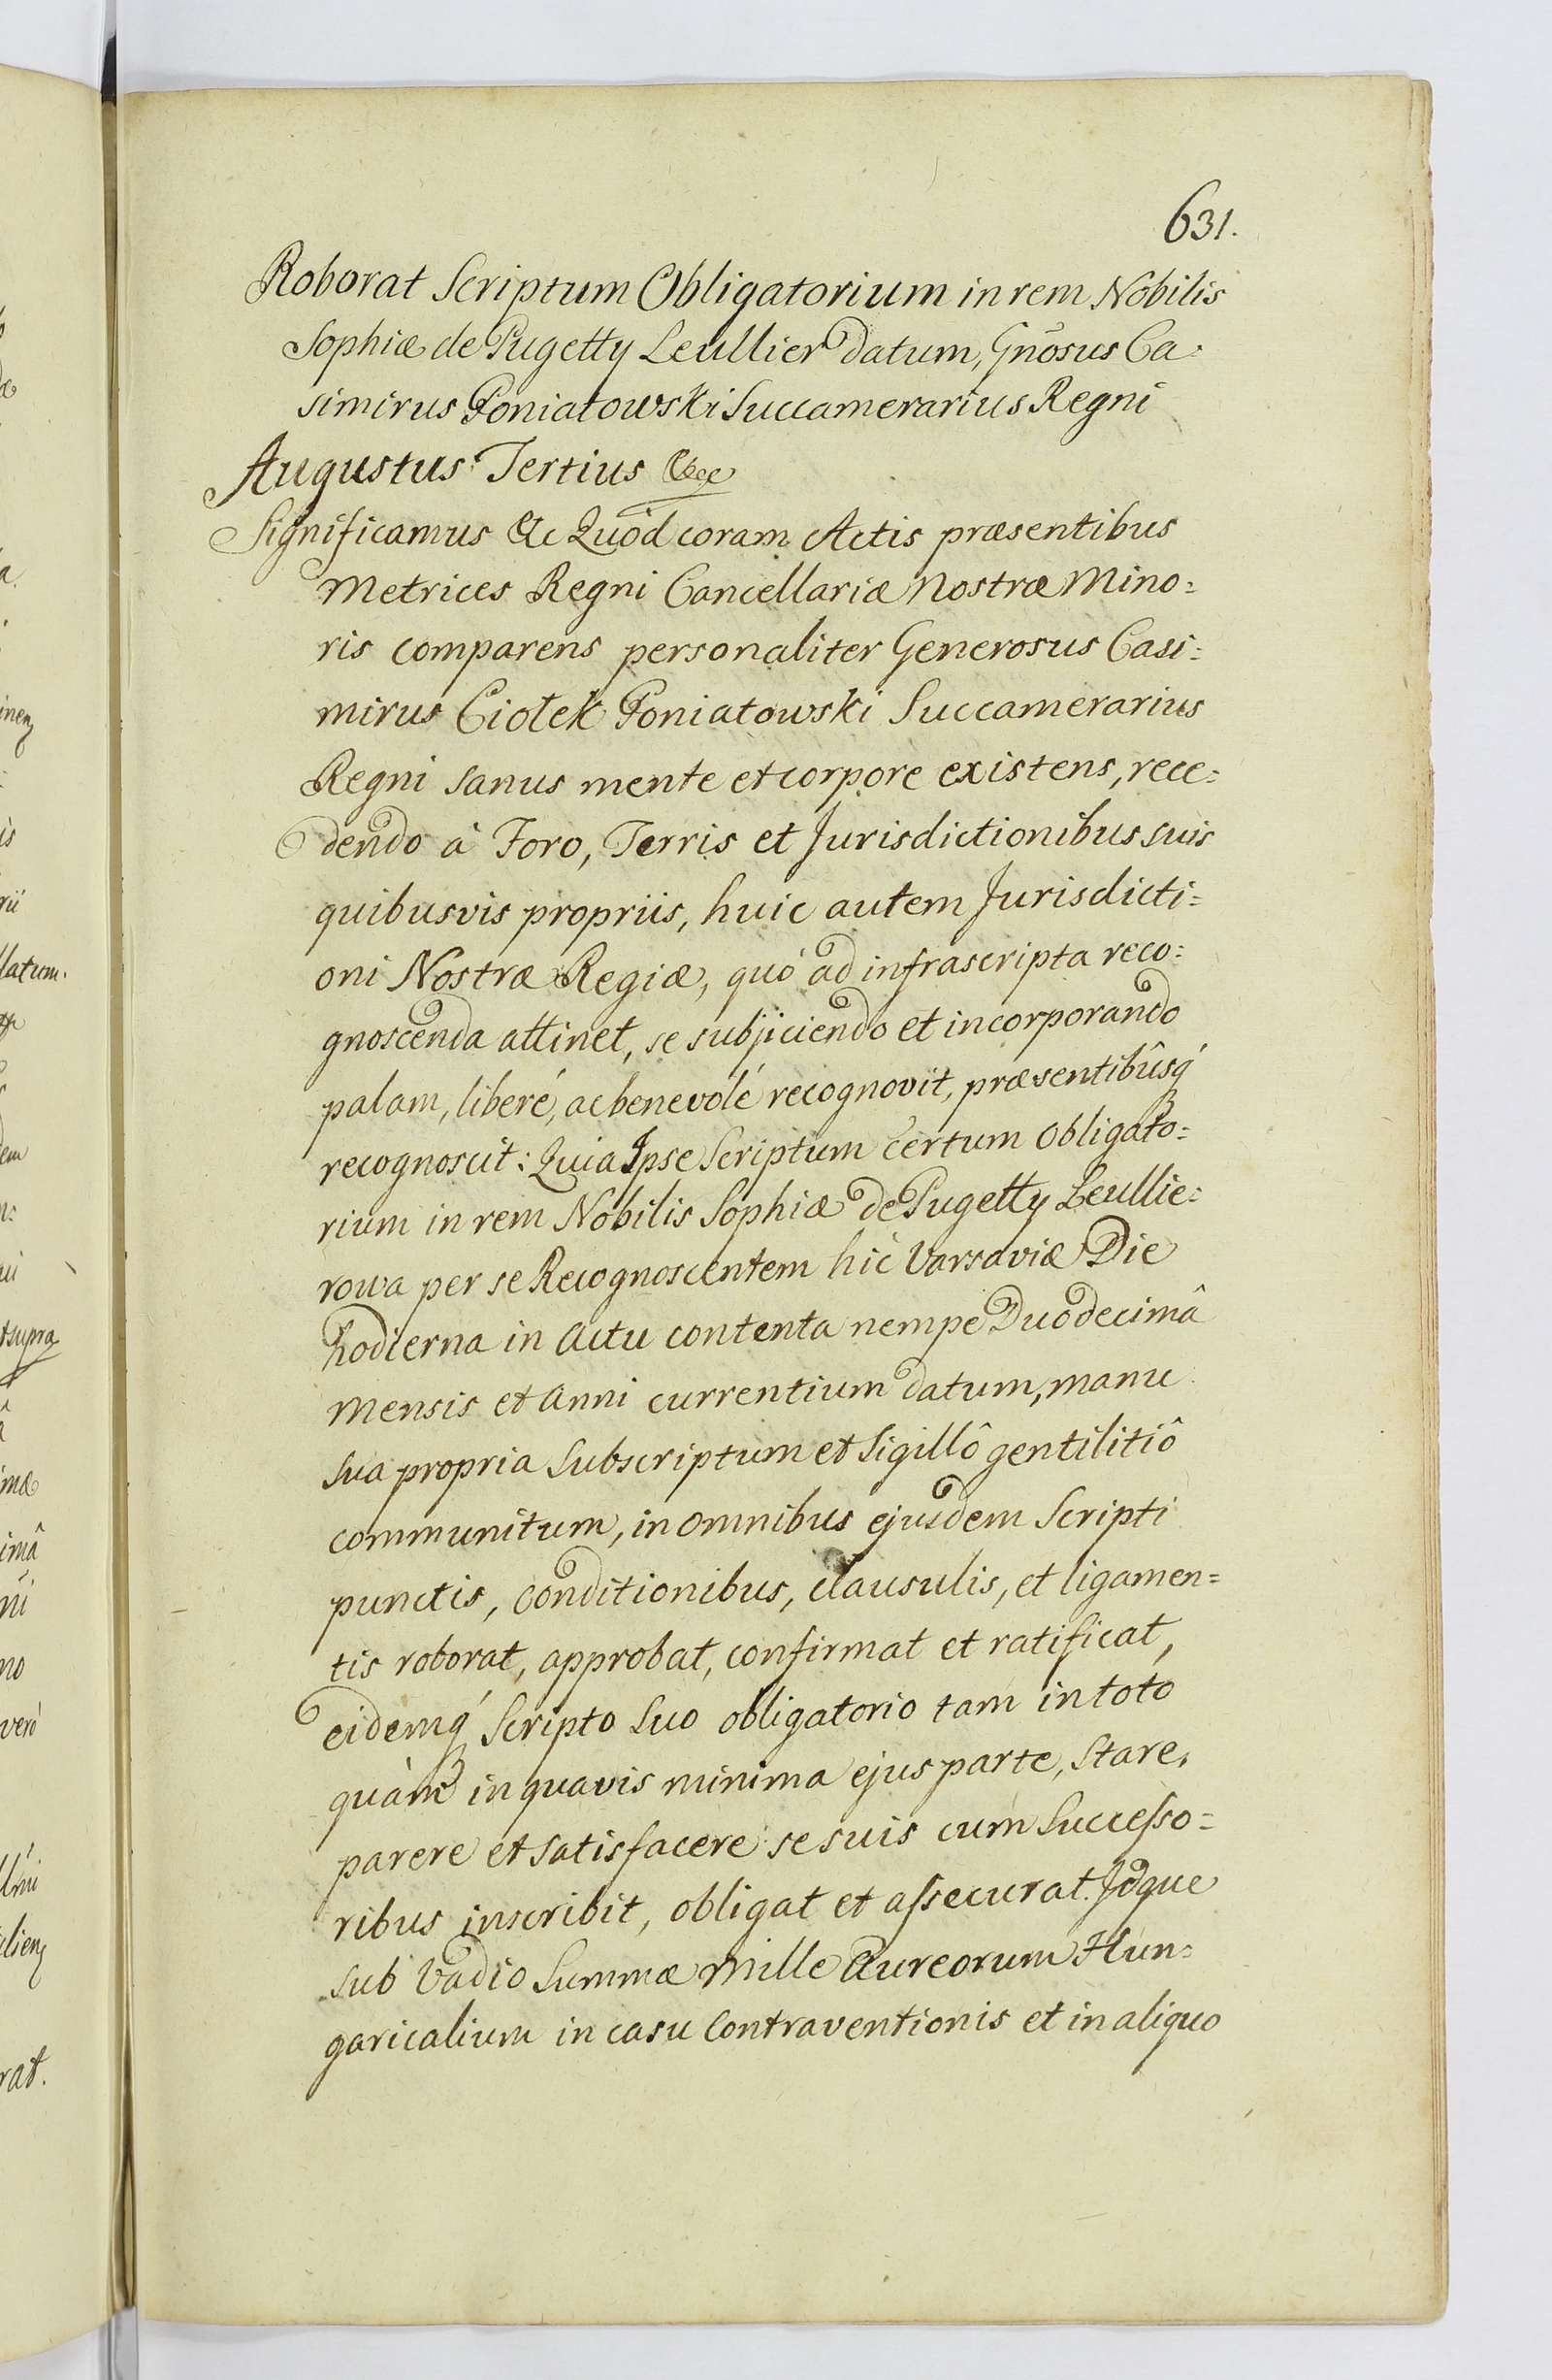 631.
Roborat Scriptum Obligatorium in rem Nobilis
Sophiæ de Pugetty Leullier datum, Gnõsus Ca:
simirus Poniatowski Succamerarius Regni
Augustus Tertius &c
Significamus &c Quod coram Actis præsentibus
Metrices Regni Cancellariæ Nostræ Mino:
ris comparens personaliter Generosus Casi:
mirus Ciołek Poniatowski Succamerarius
Regni sanus mente et corpore existens, rece:
dendo à Foro, Terris et Jurisdictionibus suis
quibusvis propriis, huic autem Jurisdicti:
oni Nostræ Regiæ, quó ad infrascripta reco:
gnoscenda attinet, se subjiciendo et incorporando
palam, liberé, ac benevolé recognovit, præsentibûsq́
recognoscit: Quia Ipse Scriptum certum Obligato:
rium in rem Nobilis Sophiæ de Pugetty Leullie:
rowa per se Recognoscentem hic Varsaviæ Die
hodierna in Actu contenta nempe Duodecimâ
Mensis et Anni currentium datum, manu
sua propria subscriptum et Sigillô gentilitiô
communitum, in omnibus ejusdem Scripti
punctis, conditionibus, clausulis, et ligamen=
tis roborat, approbat, confirmat et ratificat,
eidemq́ Scripto suo obligatorio tam in toto
quàm in quavis minima ejus parte, stare,
parere et satisfacere se suis cum Succeſso=
ribus inscribit, obligat et aſsecurat. Idque
sub Vadio Summæ Mille Aureorum Hun:
garicalium in casu Contraventionis et in aliquo